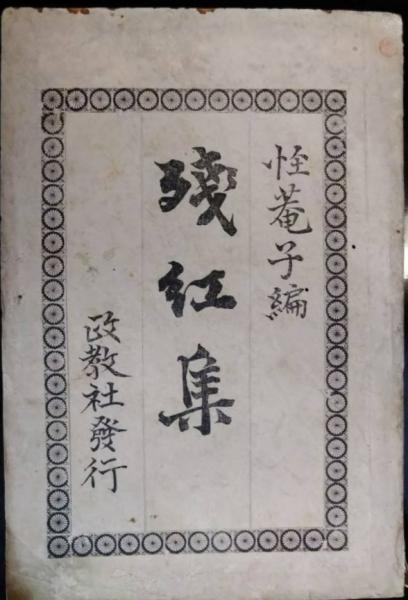 恠菴子編
殘紅集
政教社發行